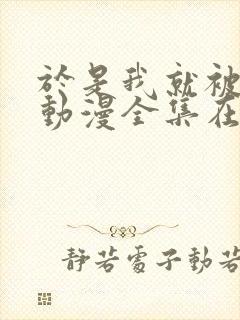 於是我就被
動漫全集在
靜若處子動若